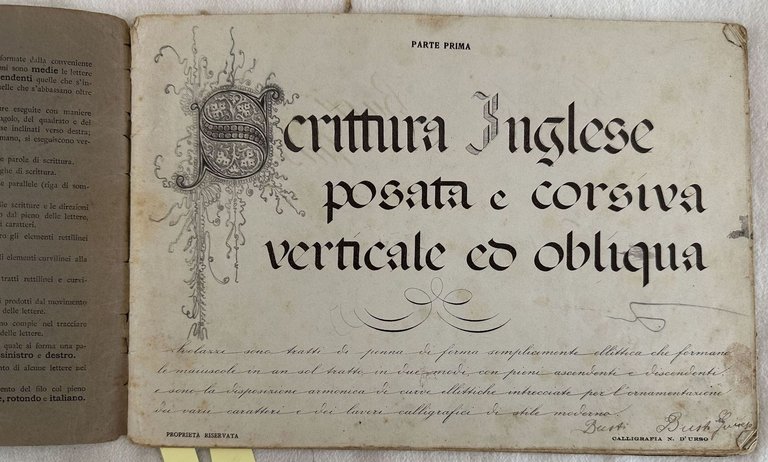 formate dalla conveniente
ni sono medie le lettere
endenti quelle che s'in-
uelle che s'abbassano oltre
re eseguite con maniere
ngolo, del quadrato e dei
se inclinati verso destra;
mano, si eseguiscono ver-
e parole di scrittura.
ghe di scrittura.
e parallele (riga di som-
lle scritture e le direzioni
dal pieno delle lettere,
i caratteri.
o gli elementi rettilinei
li elementi curvilinei alla
tratti rettilinei e curvi-
i prodotti dal movimento
delle lettere.
no compie nel tracciare
delle lettere.
quale si forma una pa-
sinistro e destro.
to di alcune lettere nel
mento del filo col pieno
e, rotondo e italiano.
PARTE PRIMA
Scrittura Inglese
posata e corsiva
verticale ed obliqua
Svolazze sono tratti di penna di forma semplicemente ellittica che formano
le maiuscole in un sol tratto in due modi, con pieni ascendenti e discendenti.
e sono la disposizione armonica di curve ellittiche intrecciate per l'ornamentazione
dei varii caratteri e dei lavori calligrafici di stile moderno.
Busti Busti
PROPRIETÀ RISERVATA
CALLIGRAFIA N. D'URSO